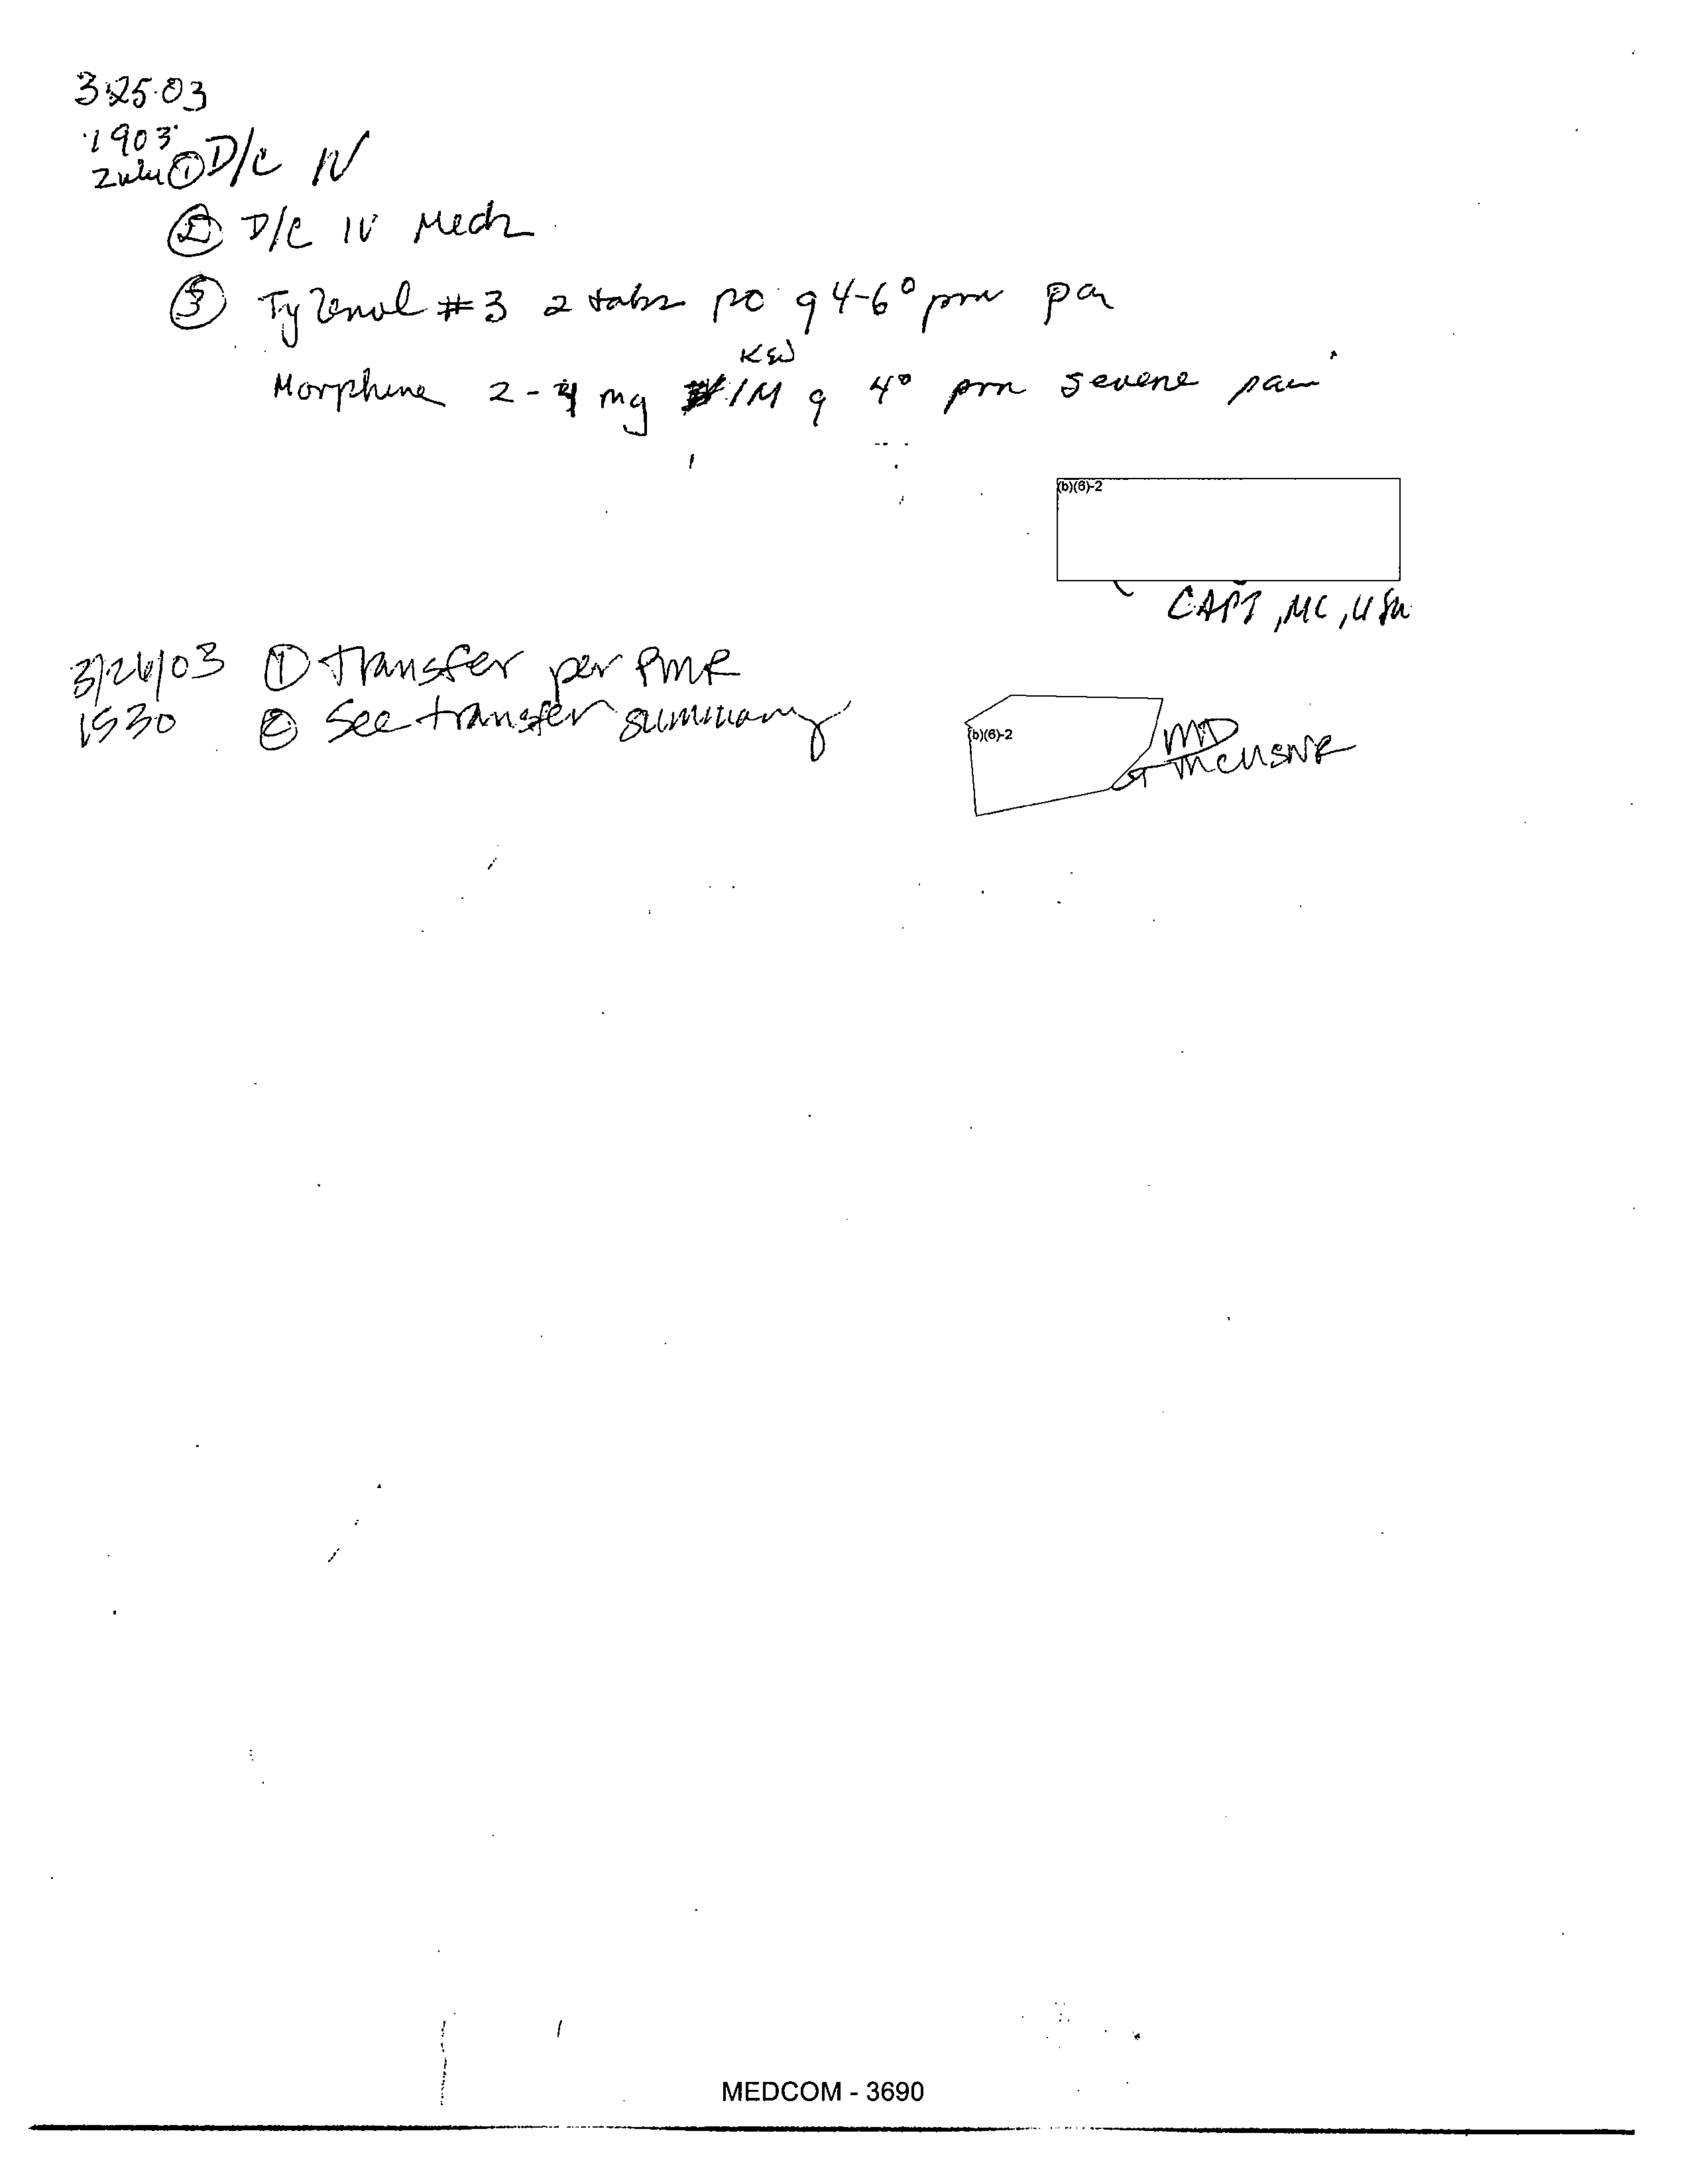 3.25.03
1903
Zulu ① D/C IV
② D/C IV Meds
③ Tylenol #3 2 tabs po q 4-6° prn pa
KEW
Morphine 2-4 mg IM q 4° prn severe pain
(b)(6)-2
CAPT, MC, USN
3/26/03 ① Transfer per PMR
1530 ② See transfer summary
(b)(6)-2
MD
MCUSNR
MEDCOM - 3690